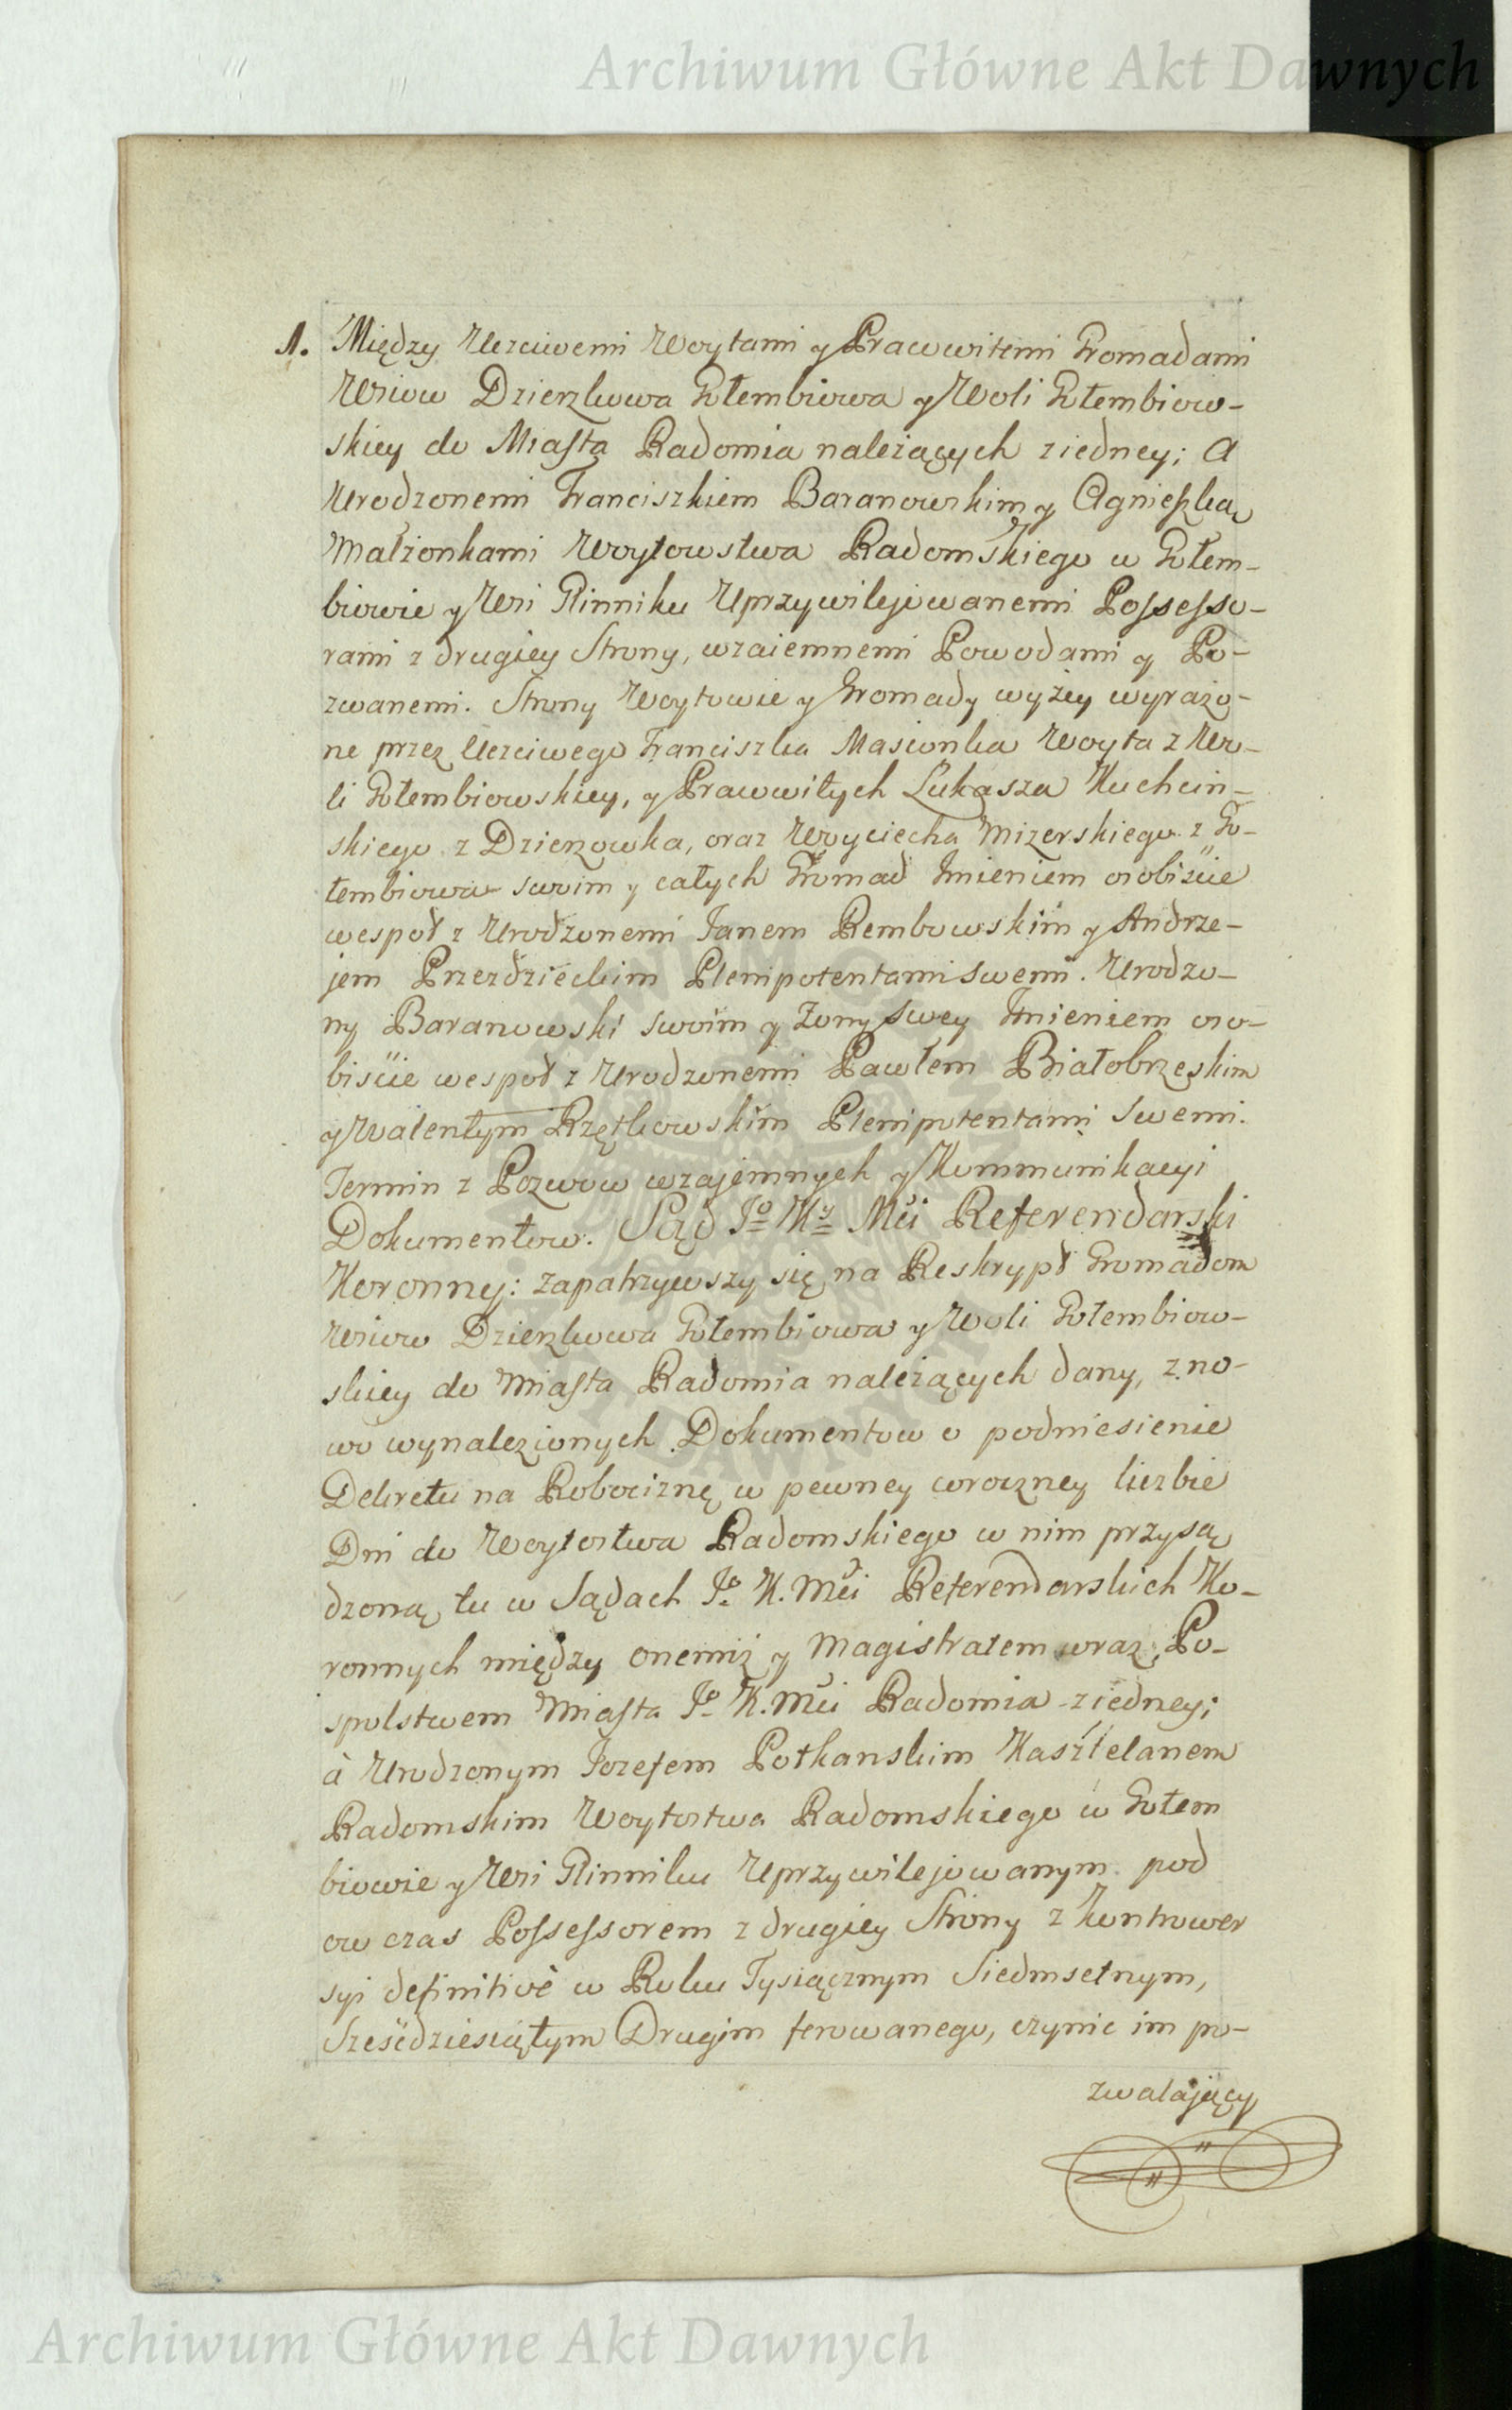 Archiwum Główne Akt Dawnych
1. Między Uczciwemi Woytami y Prawwitemi Gromadami
Wsiow Dzierzkowa Gołembiowa y Woli Gołembiow-
skiey do Miasta Radomia należących z iedney; A
Urodzonemi Franciszkiem Baranowskim y Agnieszką
Małżonkami Woytowstwa Radomskiego w Gołem-
biowie y Wsi Glinniku Uprzywilejowanemi Possesso-
rami z drugiey Strony, wzaiemnemi Powodami y Po-
zwanemi. Strony Woytowie y Gromady wyżey wyrażo-
ne przez Uczciwego Franciszka Masionka Woyta z Wo-
li Gołembiowskiey, y Prawwitych Łukasza Kuchcin-
skiego z Dzierzowka, oraz Woyciecha Mizerskiego z Go-
łembiowa swoim y całych Gromad Imieniem osobiście
wespoł z Urodzonemi Janem Rembowskim y Andrze-
jem Przezdzieckim Plenipotentami swemi. Urodzo-
ny Baranowski swoim y Żony swey Imieniem oso-
biście wespoł z Urodzonemi Pawłem Białobrzeskim
y Walentym Rzętkowskim Plenipotentami swemi.
Termin z Pozwow wzajemnych y Kommunikacyi
Dokumentow. Sąd Jo Ky Mci Referendarski
Koronny: zapatrzywszy się na Reskrypt Gromadom
Wsiow Dzierzkowa Gołembiowa y Woli Gołembiow-
skiey do Miasta Radomia należących dany, z no-
wo wynalezionych Dokumentow o podniesienie
Dekretu na Robociznę w pewney coroczney liczbie
Dni do Woytostwa Radomskiego w nim przysą
dzoną tu w Sądach Jo K. Mci Referendarskich Ko-
ronnych między onemiż y Magistratem wraz Po-
spolstwem Miasta Jo K. Mci Radomia z iedney;
à Urodzonym Jozefem Potkanskim Kasztelanem
Radomskim Woytostwa Radomskiego w Gołem
biowie y Wsi Glinniku Uprzywilejowanym pod
ow czas Possessorem z drugiey Strony z Kontrower
syi definitivè w Roku Tysiącznym Siedmsetnym,
Sześćdziesiątym Drugim ferowanego, czynic im po-
zwalający
Archiwum Główne Akt Dawnych